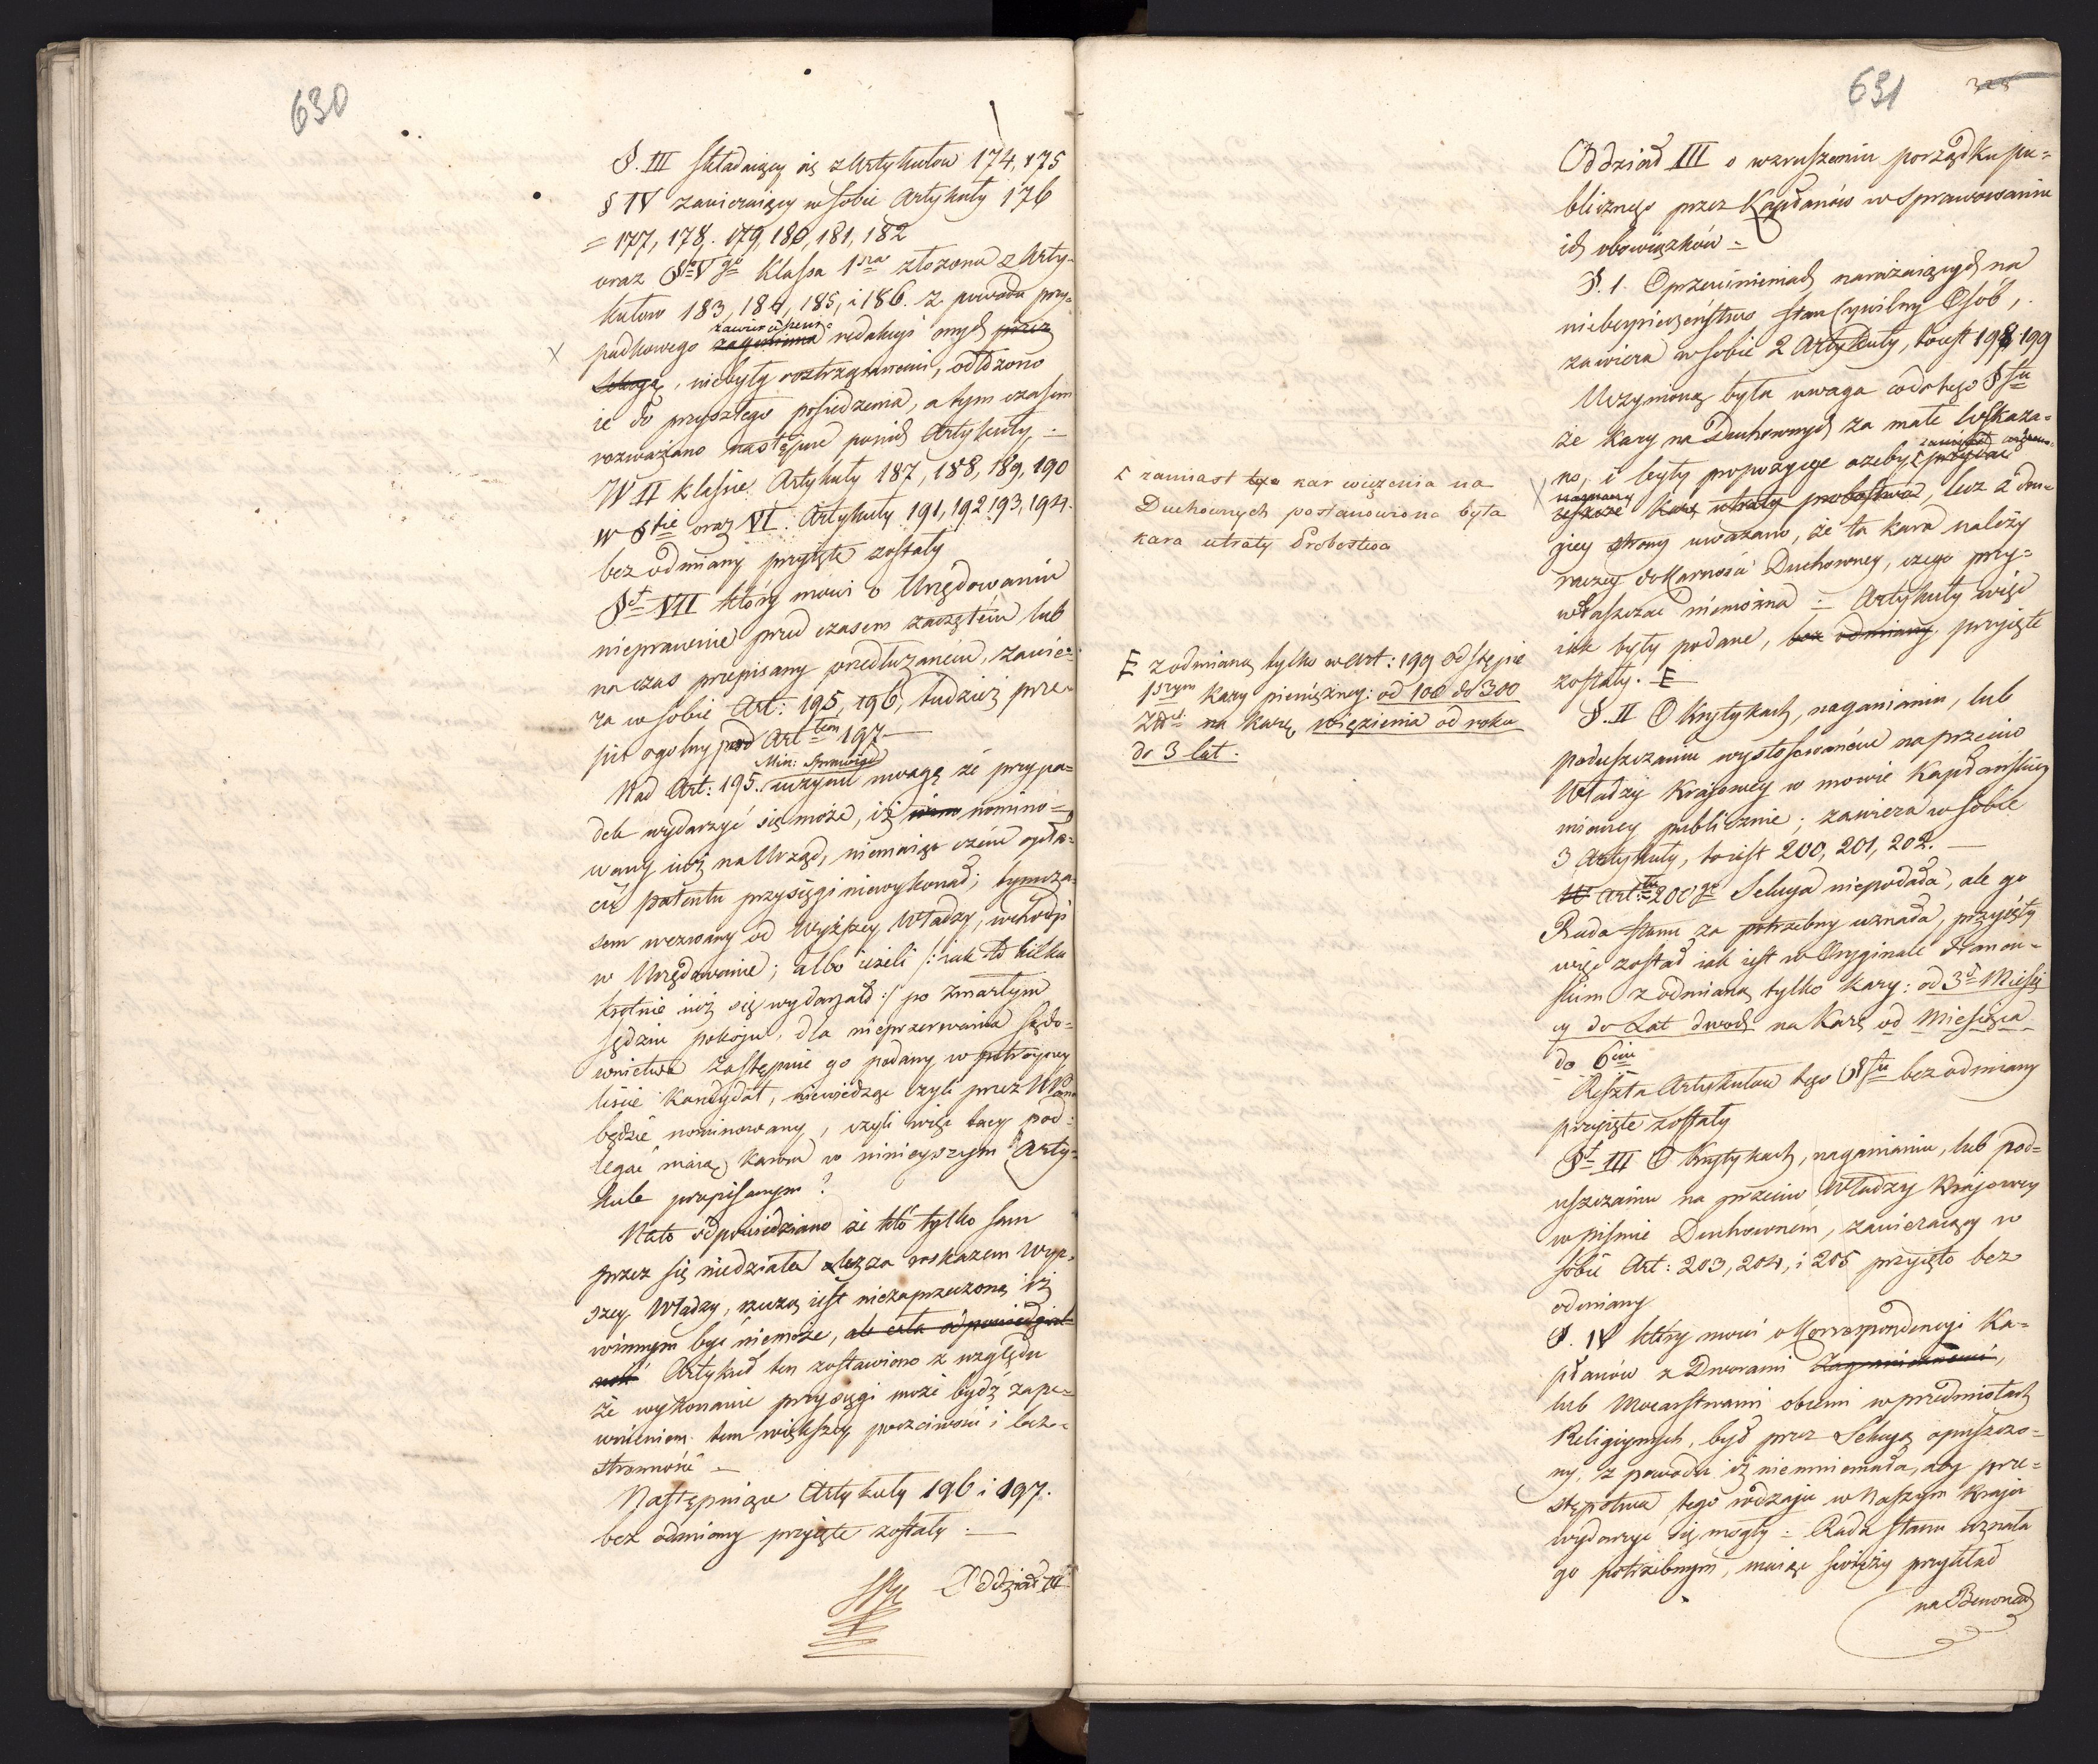 630
§. III składaiący się z Artykułow 174, 175
§ IV zawieraiący w sobie Artykuły 176
= 177, 178. 179, 180, 181, 182
oraz §u V go Klassa 1sza złożona z Arty-
kułow 183, 184, 185, i 186. z powodu przy-
padkowego redakcyi onych przez
Sekcyą, niebyły roztrząsanemi, odłożono
ie do przyszłego posiedzenia, a tym czasem
rozważano następne ponich Artykuły. –
W II klassie Artykuły 187, 188, 189, 190
w §fie oraz VI. Artykuły 191, 192, 193, 194.
bez odmiany przyięte zostały
§f VII który mowi o Urzędowaniu
nieprawnie przed czasem zaczętém lub
na czas przepisany przedłużanem, zawie-
ra w sobie Art: 195, 196, tudzież prze-
pis ogolny pod Art tem 197 –
Min: Sprawied:
Nad Art: 195. uczynił uwagę że przypa-
dek wydarzyć się może, iż nomino-
wany iuż na Urząd, niemaiąc czém opła-
cić patentu przysięgi niewykonał; tymcza-
sem wezwany od Wyższey Władzy, wchodzi
w Urzędowanie; albo ieżeli /: iak to kilka
krotnie iuż się wydarzało :/ po zmarłym
sędziu pokoju, dla nieprzerwania sądo-
wnictwa zastępuie go podany w potroyney
liście Kandydat, niewiedząc czyli przez
będzie nominowany, czyli więc tacy pod-
legać maią karom w ninieyszym Arty-
kule przepisanym?
Nato odpowiedziano że kto tylko sam
przez się niedziała lecz za roskazem Wyż-
szey Władzy, rzeczą iest niezaprzeczoną iż
winnym byc niemoże, ale cała odpowiedzial-
ność Artykuł ten zostawiono z względu
że wykonanie przysięgi może bydź zape-
wnieniem tem większey poczciwości i bez-
stronności –
Następuiące Artykuły 196 i 197.
bez odmiany przyięte zostały. –
Oddział III
631
Oddział III o wzruszeniu porządku pu-
blicznego przez Kapłanów w sprawowaniu
ich obowiązków –
§. 1. O przewinieniach narażaiących na
niebezpieczeństwo stan Cywilny Osób,
zawiera w sobie 2 Artykuły, toiest 198, 199
Uczynioną była uwaga co do tego §fu
że kary na Duchownych za małe wskaza-
no, i były propozycye ażeby przydać
karę utraty probostwa, lecz z dru-
giey strony uważano, że ta kara należy
raczey do Karności Duchowney, czego przy-
właszczac niemożna – Artykuły więc
iak były podane, bez odmiany przyięte
zostały. E
zamiast tych kar więzienia na
Duchownych postanowiona była
kara utraty Probostwa
E z odmianą tylko w Art: 199 Ostępie
1szym Kary pieniężney: od 100 do 300
Złłch na Karę więzienia od roku
do 3 lat.
§. II O Krytykach, naganianiu, lub
poduszczaniu wystosowaném naprzeciw
Władzy Krajowey w mowie Kapłańskiey
mianey publicznie; zawiera w sobie
3 Artykuły, to iest 200, 201, 202. –
Art: 200 go Sekcya niepodała, ale go
Rada Stanu za potrzebny uznała, przyięty
więc został iak iest w Oryginale Francu-
skim z odmianą tylko kary: od 3ch Miesię
cy do Lat dwoch na Karę od Miesiąca
do 6ciu
Reszta Artykułow tego §fu bez odmiany
przyięte zostały
§f III O Krytykach, naganianiu, lub pod-
uszczaniu na przeciw Władzy Krajowey
w piśmie Duchowném, zawieraiący w
sobie Art: 203, 204, i 205 przyięto bez
odmiany
§. IV który mowi o Korrespondencyi Ka-
płanów z Dworami Zagranicznemi,
lub Mocarstwami obcemi w przedmiotach
Religiynych, był przez Sekcyą opuszczo-
ny, z powodu iż niemniemała, aby prze-
stępstwa tego rodzaju w Naszym Kraju
wydarzyć się mogły: Rada Stanu uznała
go potrzebnym, maiąc świeży przykład
na Benonach